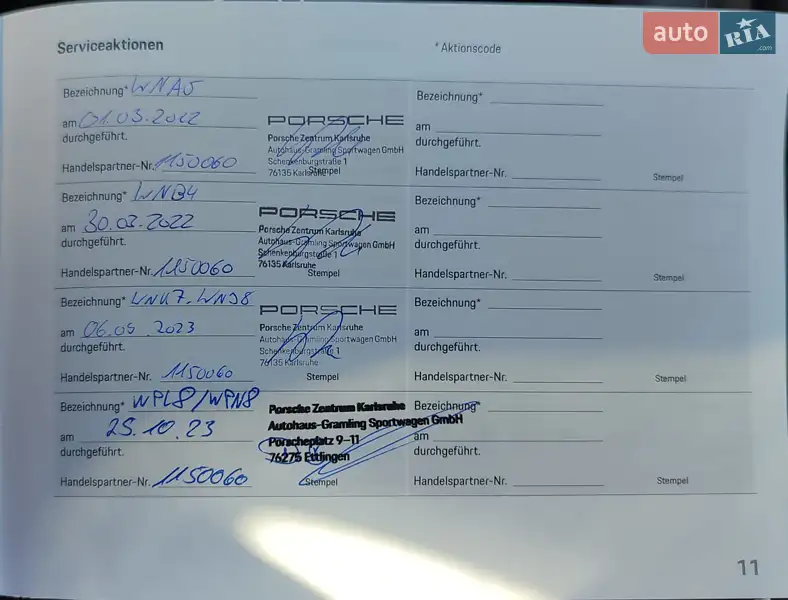 Serviceaktionen
* Aktionscode
auto RIA .com
Bezeichnung* WNA5
am 01.03.2022
durchgeführt.
Handelspartner-Nr. 1150060
PORSCHE
Porsche Zentrum Karlsruhe
Autohaus-Gramling Sportwagen GmbH
Schenkenburgstraße 1
76135 Karlsruhe
Stempel
Bezeichnung*
am
durchgeführt.
Handelspartner-Nr.
Stempel
Bezeichnung* WNB4
am 30.03.2022
durchgeführt.
Handelspartner-Nr. 1150060
PORSCHE
Porsche Zentrum Karlsruhe
Autohaus-Gramling Sportwagen GmbH
Schenkenburgstraße 1
76135 Karlsruhe
Stempel
Bezeichnung*
am
durchgeführt.
Handelspartner-Nr.
Stempel
Bezeichnung*
am 06.05.2023
durchgeführt.
Handelspartner-Nr. 1150060
PORSCHE
Porsche Zentrum Karlsruhe
Autohaus-Gramling Sportwagen GmbH
Schenkenburgstraße 1
76135 Karlsruhe
Stempel
Bezeichnung*
am
durchgeführt.
Handelspartner-Nr.
Stempel
Bezeichnung* WPL8/WPN8
am 25.10.23
durchgeführt.
Handelspartner-Nr. 1150060
Porsche Zentrum Karlsruhe
Autohaus-Gramling Sportwagen GmbH
Porscheplatz 9-11
76275 Ettlingen
Stempel
Bezeichnung*
am
durchgeführt.
Handelspartner-Nr.
Stempel
11